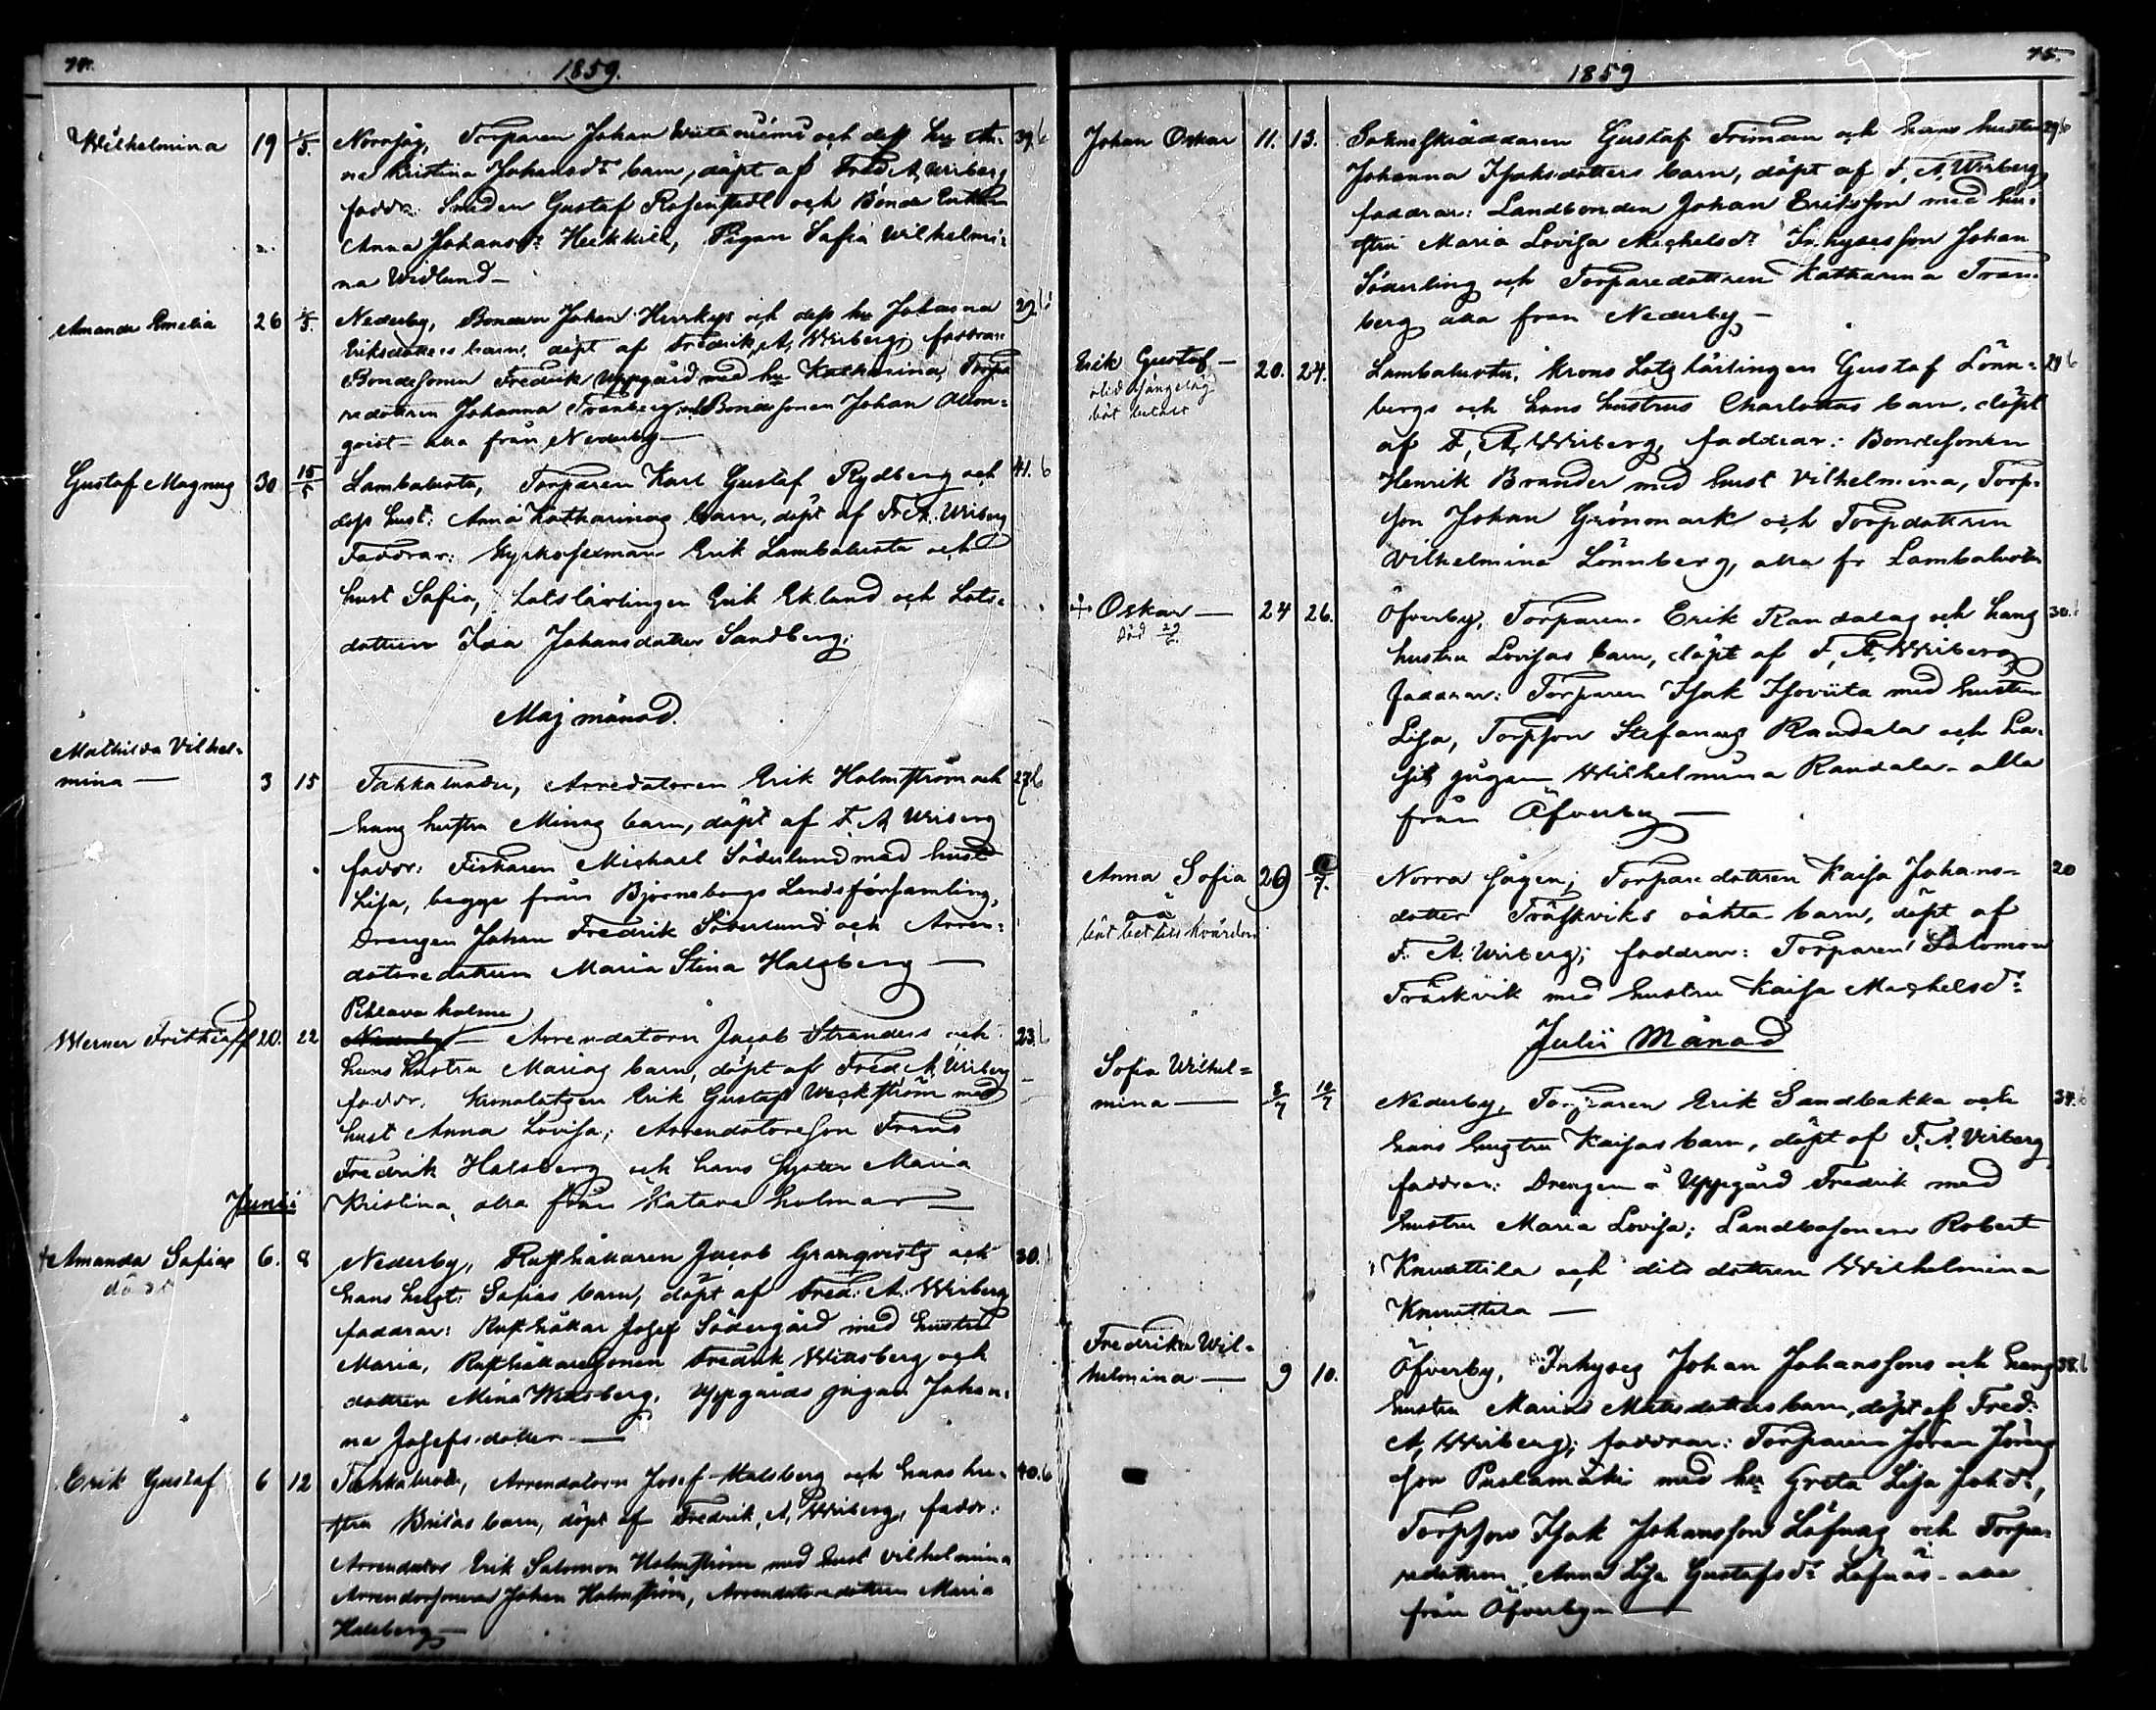 74.
1859.
Wilhelmina 19 1/5. Norrsåg, Torparen Johan och dess hu An- 39. b
na Kristina Johansdr barn, döpt af Fred A, Wirberg
faddr: Smeden Gustaf Rosenstedt och Bonde Enkan
Anna Johansdr Heikkilä, Pigan Sofia Wilhelmi-
na Widlund —
Amanda Emelia 26 1/5. Nederby, Bonden Johan Herrkys och dess hu Johanna 29. b
Eriksdotters barn, döpt af Fredrik, A, Wirberg; faddrar:
Bondesonen Fredrik Uppgård med hu Katharina, Torpa
redottren Johanna Tranberg och Bondesonen Johan
qvist — alla från Nederby —
Gustaf Magnus 30 15/5 Lambaluoto, Torparen Karl Gustaf Rydberg och 41. b
dess hust: Anna Katharinas barn, döpt af Fr A. Wirberg
Faddrar: Kyrkosexman Erik Lambaluoto och
hust Sofia, Lotslärlingen Erik Eklund och Lots-
dottren Ida Johansdotter Sandberg.
Maj månad.
Mathilda Vilhel-
mina — 3 15 Tahkaluoto, Arredatoren Erik Holmström och 27 b
hans hustru Minas barn, döpt af F. A, Wirberg
faddr: Fiskaren Michael Söderlund med hust
Lisa, begge från Björneborgs Landsförsamling,
Drengen Johan Fredrik Söderlund och Arren-
datoredottren Maria Stina Halsberg —
Pihlava holme
Werner Frithioff 20. 22 Nederby — Arrendatorn Jacob Stranders och 23. b
hans hustru Marias barn, döpt af Fred A, Wirberg
faddr. Kronolotsen Erik Gustaf Weckström med
hust Anna Lovisa; Arrendatoreson Frans
Fredrik Halsberg och hans syster Maria
Junii Kristina, alla från Katava holmar —
+ Amanda Sofia 6. 8 Nederby, Rusthållaren Jacob Granqvists och 30. b
död
hans hust: Sofias barn, döpt af Fred: A. Wirberg
faddrar: Rusthållar Josef Södergård med hustru
Maria, Rusthållaresonen Fredrik Wittsberg och
dottren Mina Wittsberg, Uppgårds pigan Johan-
na Josefsdotter —
Erik Gustaf 6 12 Tahkaluoto, Arrendatorn Josef Halsberg och hans hu- 40. b
stru Britas barn, döpt af Fredrik, A, Wirberg, faddr:
Arrendator Erik Salomon Holmström med hust Vilhelmina
Arrendorsonen Johan Holmström, Arrendatoredottren Maria
Halsberg —
75.
1859
Johan Oskar 11. 13. Sockneskräddaren Gustaf Friman och hans hustru 29 b
Johanna Isaksdotters barn, döpt af F, A, Wirberg,
faddrar: Landbonden Johan Eriksson med hu-
stru Maria Lovisa Michelsdr Inhysesson Johan
Söderling och Torparedottren Katharina Tran-
berg alla från Nederby —
Erik Gustaf — 20. 24. Lambaluoto, Krono Lotslärlingen Gustaf Lönn- 29 b
bergs och hans hustrus Charlottas barn, döpt
af F, A, Wirberg, faddrar: Bondesonen
Henrik Brander med hust Vilhelmina, Torp-
son Johan Grönmark och Torpdottren
Vilhelmina Lönnberg, alla fr Lambaluoto
+ Oskar — 24 26. Öfverby, Torparen Erik Randalas och hans 30. b
död 29/6
hustru Lovisas barn, döpt af F, A, Wirberg
faddrar: Torparen Isak Isoviita med hustru
Lisa, Torpson Stefanus Randala och
pigan Wilhelmina Randala — alla
från Öfverby —
Anna Sofia 26 /7. Norra sågen; Torparedottren Kaisa Johans- 20
oä
dotter Träskviks oäkta barn, döpt af
F. A. Wirberg; faddrar: Torparen Salomon
Träskvik med hustru Kaisa Michelsdr
Julii Månad
Sofia Wilhel-
mina — 8/7 10/7 Nederby, Torparen Erik Sandbakka och 34. b
hans hustru Kaisas barn, döpt af F, A, Virberg,
faddrar: Drengen å Uppgård Fredrik med
hustru Maria Lovisa; Landbosonen Robert
Knuuttila och dito dottren Wilhelmina
Knuuttila —
Fredrika Wil-
helmina — 9 10. Öfverby, Inhyses Johan Johanssons och hans 38. b
hustru Marias Matsdotters barn, döpt af Fred:
A, Wirberg; faddrar: Torparen Johan Johans
son Puslamäki med hu Greta Lisa Johdr,
Torpson Isak Johansson Löfnäs och Torpa-
redottren Anna Lisa Gustafsdr Löfnäs — alla
från Öfverby —